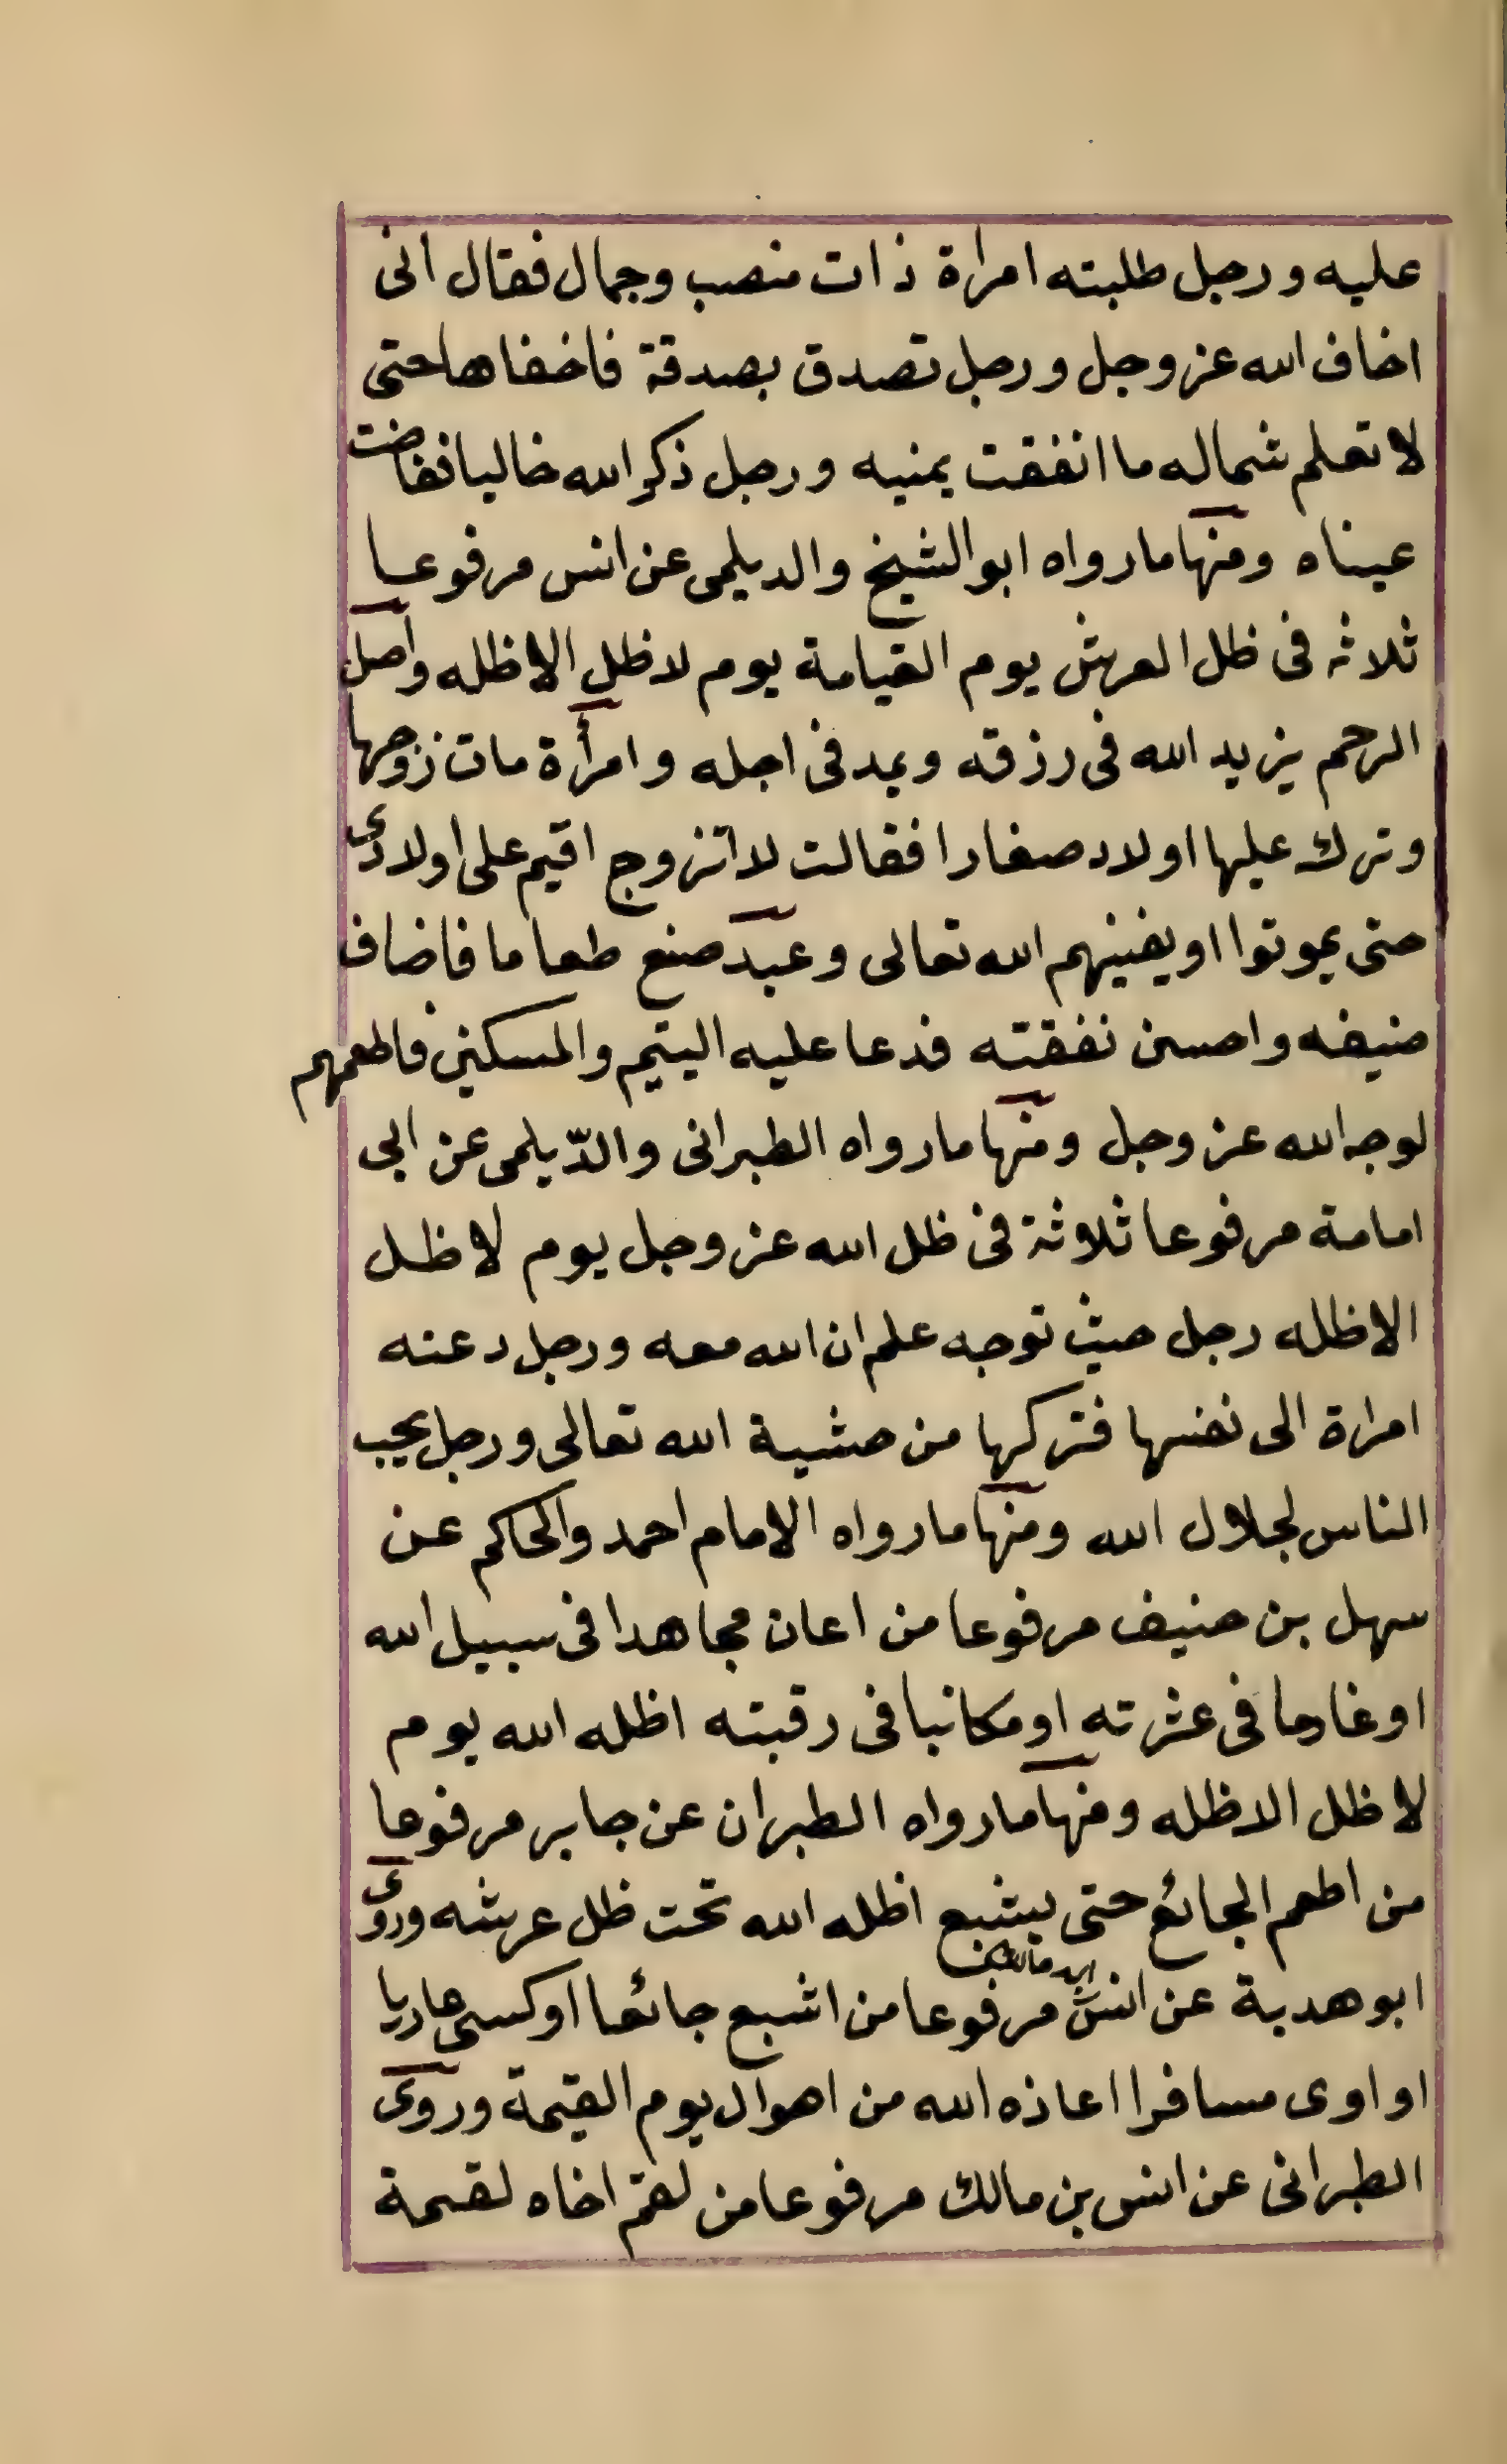 عليه ورجل طلبته امراة ذات منصب وجمال فقال انى
اخاف الله عز وجل ورجل تصدق بصدقة فاخفاها حتى
لا تعلم شماله ما انفقت يمنيه ورجل ذكر الله خاليا ففاضت
عيناه ومنها ما رواه ابو الشيخ والديلمى عن انس مرفوعا
ثلاثه فى ظل العرش يوم القيامة يوم لا ظل الا ظله واصل
الرحم يزيد الله فى رزقه ويمد فى اجله وامرأة مات زوجها
وترك عليها اولاد صغارا فقالت لا اتزوج اقيم على اولادى
حتى يموتوا او يغنيهم الله تعالى وعبد صنع طعاما فاضاف
ضيفه واحسن نفقته فدعا عليه اليتيم والمسكين فاطعمهم
لوجه الله عز وجل ومنها ما رواه الطبرانى والدّيلمى عن ابى
امامة مرفوعا ثلاثة فى ظل الله عز وجل يوم لا ظل
الا ظله رجل حيث توجه علم ان الله معه ورجل دعته
امراة الى نفسها فتركها من خشية الله تعالى ورجل يحب
الناس لجلال الله ومنها ما رواه الامام احمد والحاكم عن
سهل بن حنيف مرفوعا من اعان مجاهدا فى سبيل الله
او غارما فى عشرته او مكاتبا فى رقبته اظله الله يوم
لا ظل الا ظله ومنها ما رواه الطبران عن جابر مرفوعا
من اطعم الجائع حتى يشبع اظله الله تحت ظل عرشه وروى
ابو هدبة عن انس بن مالك مرفوعا من اشبع جائعا او كسى عاريا
او اوى مسافرا اعاذه الله من اهوال يوم القيمة وروى
الطبرانى عن انس بن مالك مرفوعا من لقم اخاه لقمة